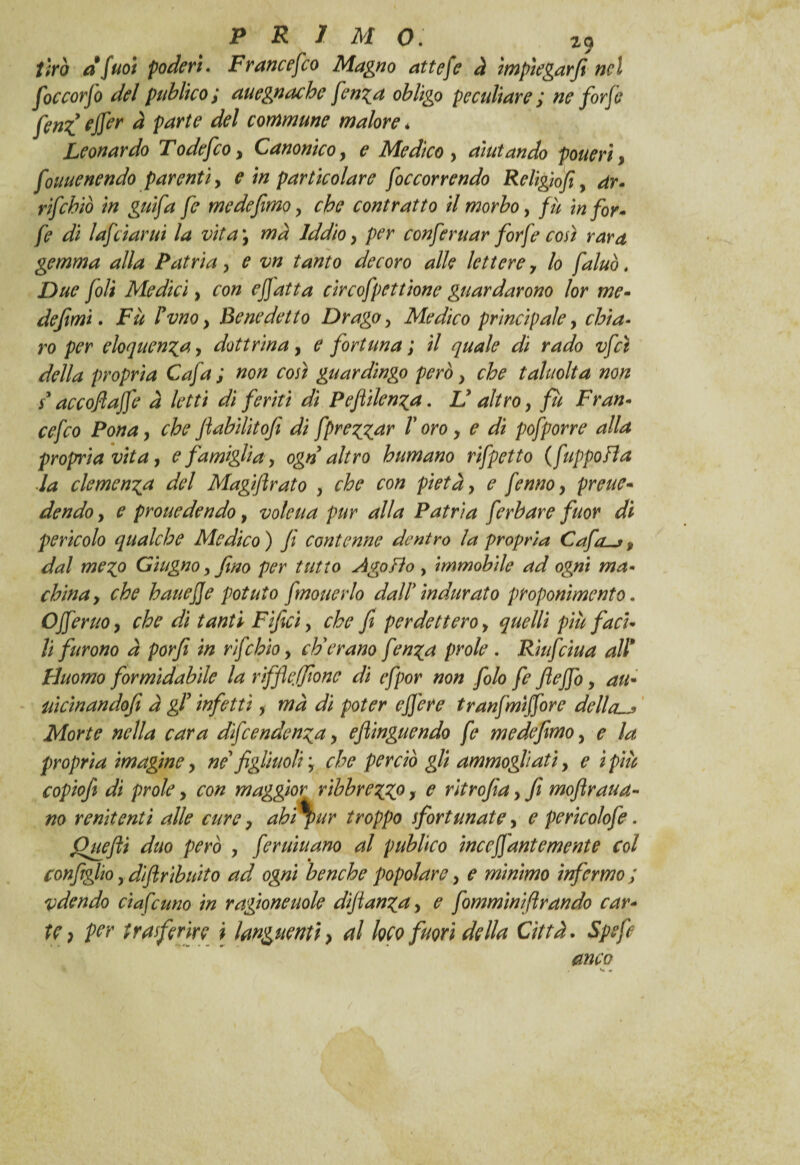 PRIMO. 29
tirò a' ſuoi poderi. Franceſco Magno atteſe à impiegarſi nel
ſoccorſo del publico; auegnache ſenza obligo peculiare; ne forſe
ſenz' eſſer à parte del commune malore.
Leonardo Todeſco, Canonico, e Medico, aiutando poueri,
ſouuenendo parenti, e in particolare ſoccorrendo Religioſi, ar-
riſchiò in guiſa ſe medeſimo, che contratto il morbo, fù in for-
ſe di laſciarui la vita; mà Iddio, per conſeruar forſe così rara
gemma alla Patria, e vn tanto decoro alle lettere, lo ſaluò.
Due ſoli Medici, con eſſatta circoſpettione guardarono lor me-
deſimi. Fù l'vno, Benedetto Drago, Medico principale, chia-
ro per eloquenza, dottrina, e fortuna; il quale di rado vſcì
della propria Caſa; non così guardingo però, che taluolta non
s' accoſtaſſe à letti di feriti di Peſtilenza. L' altro, fù Fran-
ceſco Pona, che ſtabilitoſi di ſprezzar l' oro, e di poſporre alla
propria vita, e famiglia, ogn' altro humano riſpetto (ſuppoſta
la clemenza del Magiſtrato, che con pietà, e ſenno, preue-
dendo, e prouedendo, voleua pur alla Patria ſerbare fuor di
pericolo qualche Medico) ſi contenne dentro la propria Caſa,
dal mezo Giugno, ſino per tutto Agoſto, immobile ad ogni ma-
china, che haueſſe potuto ſmouerlo dall' indurato proponimento.
Oſſeruo, che di tanti Fiſici, che ſi perdettero, quelli più faci-
li furono à porſi in riſchio, ch'erano ſenza prole. Riuſciua all'
Huomo formidabile la riffleſſione di eſpor non ſolo ſe ſteſſo, au-
uicinandoſi à gl' infetti, mà di poter eſſere tranſmiſſore della
Morte nella cara diſcendenza, eſtinguendo ſe medeſimo, e la
propria imagine, ne' figliuoli; che perciò gli ammogliati, e i più
copioſi di prole, con maggior ribbrezzo, e ritroſia, ſi moſtraua-
no renitenti alle cure, ahi pur troppo sfortunate, e pericoloſe.
Queſti duo però, ſeruiuano al publico inceſſantemente col
conſiglio, diſtribuito ad ogni benche popolare, e minimo infermo;
vdendo ciaſcuno in ragioneuole diſtanza, e ſomminiſtrando car-
te, per trasferire i languenti, al loco fuori della Città. Speſe
anco